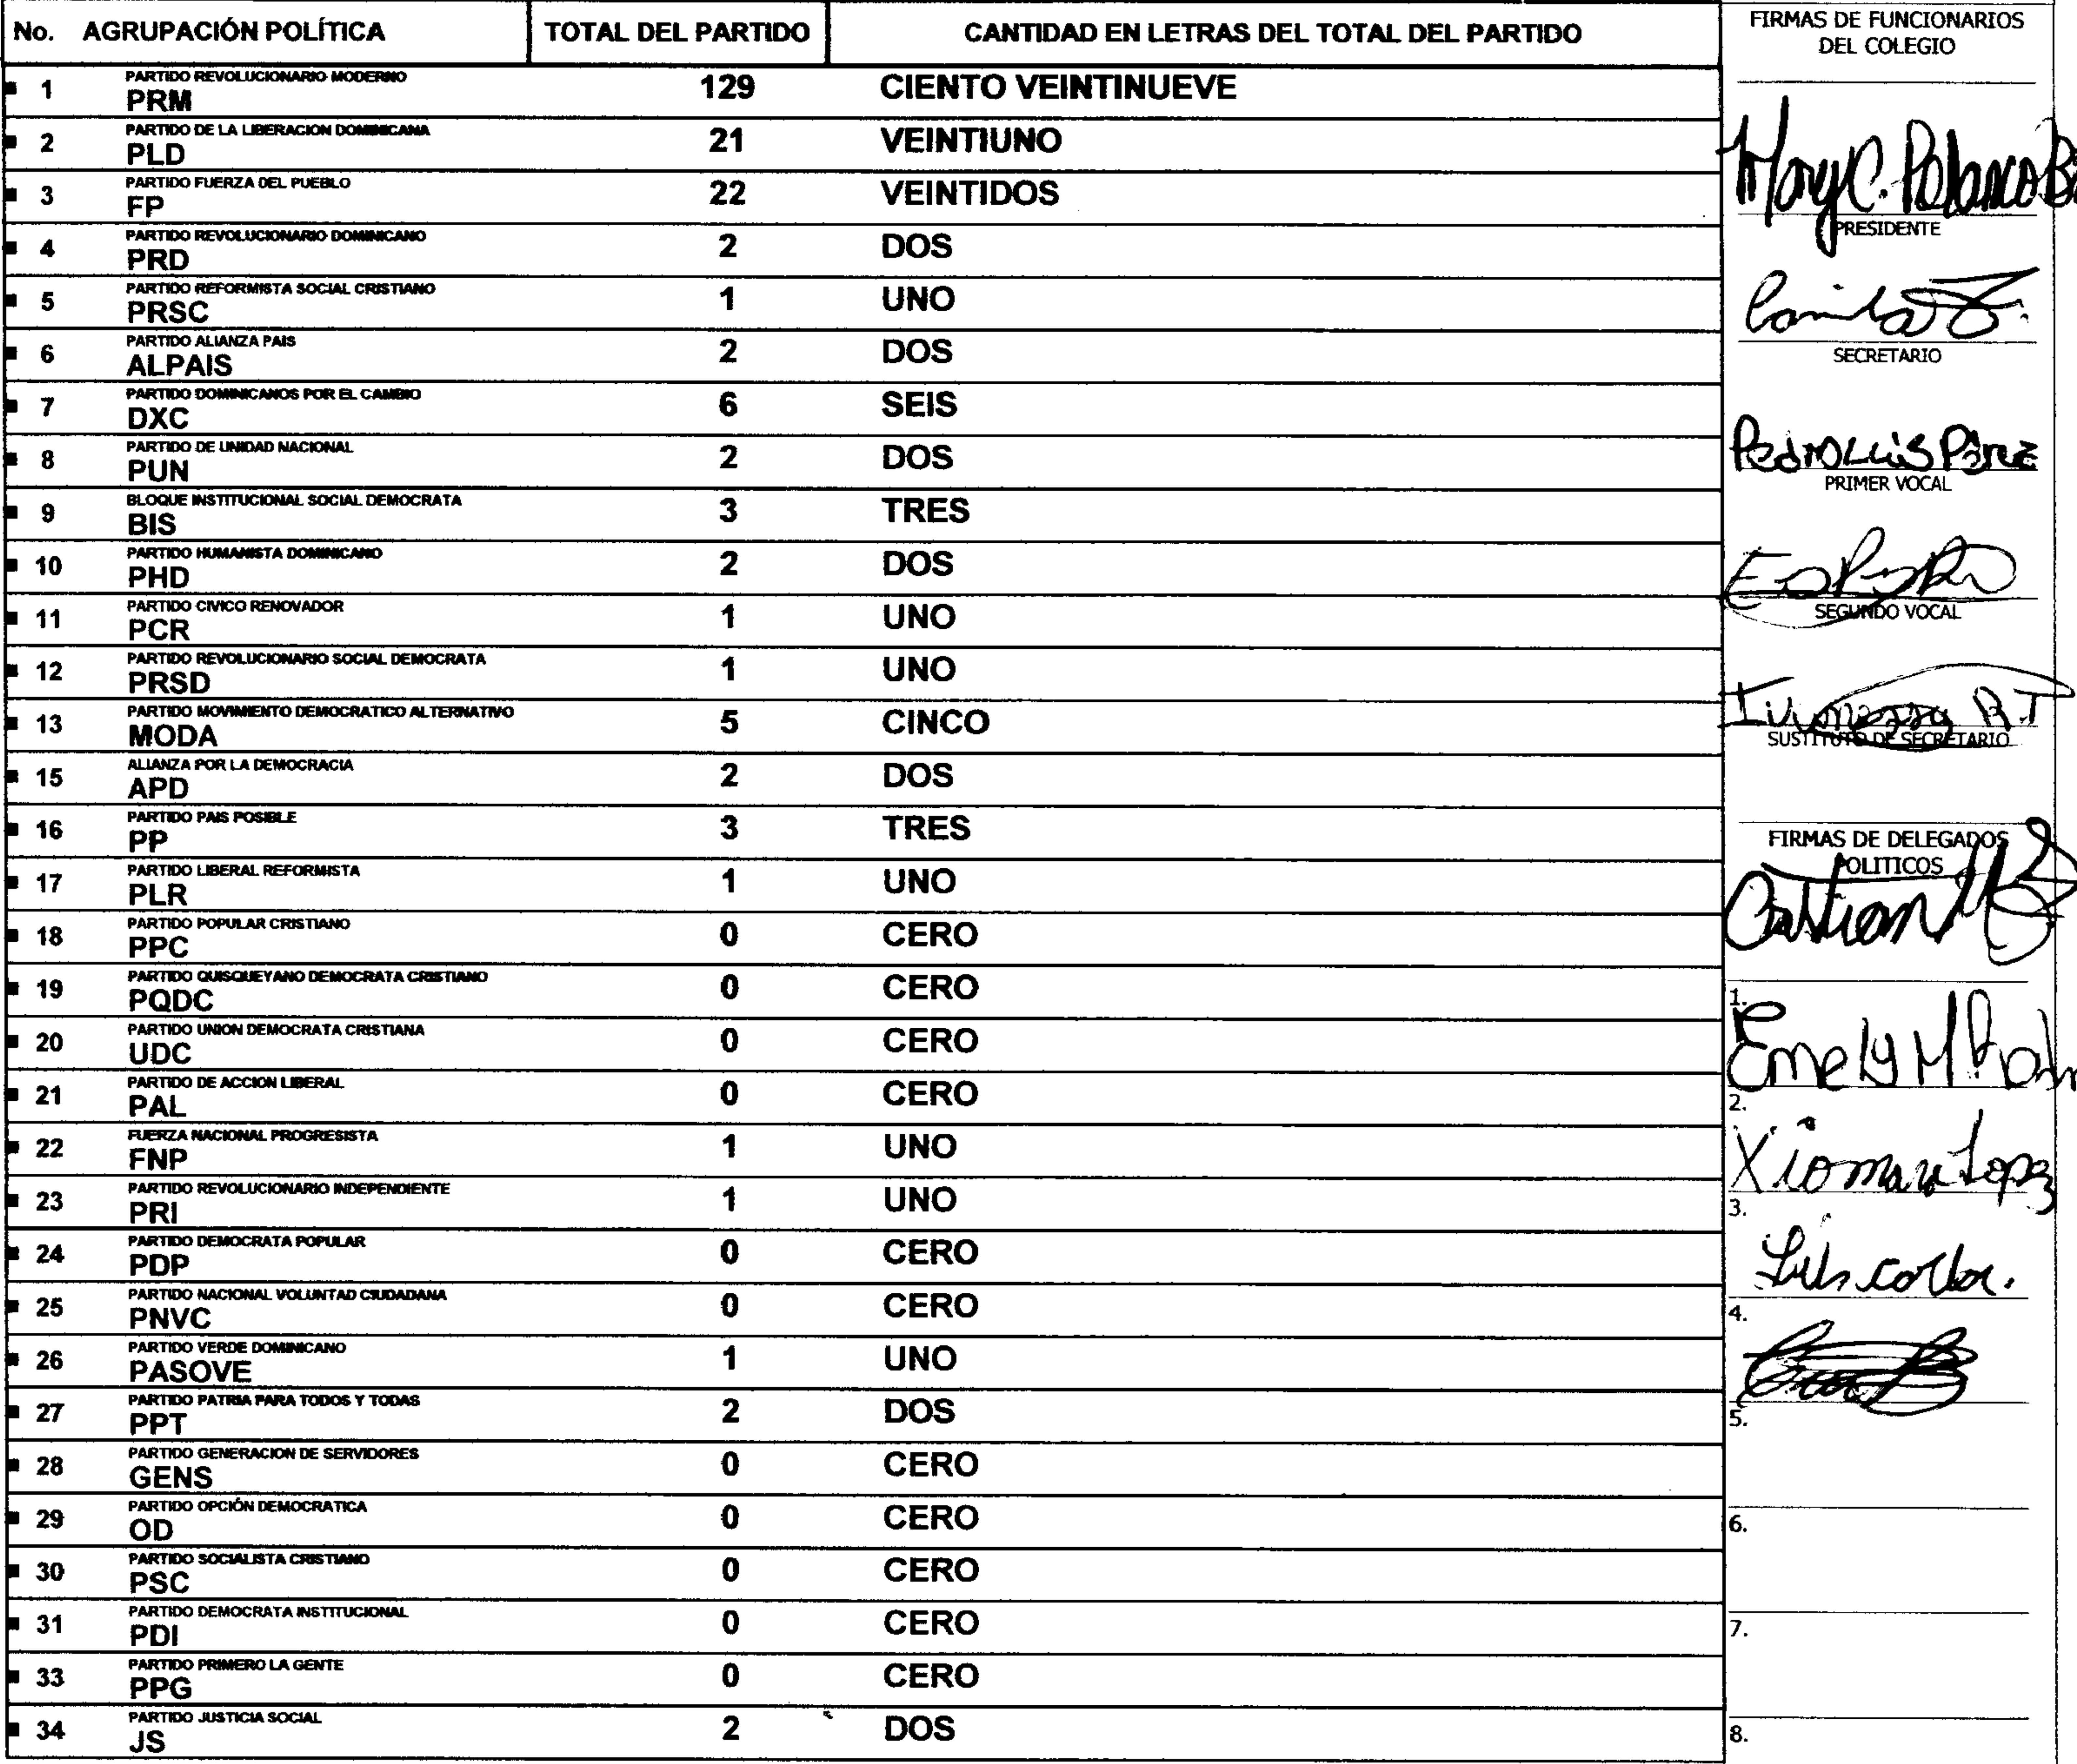 No. AGRUPACIÓN POLÍTICA TOTAL DEL PARTIDO CANTIDAD EN LETRAS DEL TOTAL DEL PARTIDO
PARTIDO REVOLUCIONARIO MODERNO
1 PRM 129 CIENTO VEINTINUEVE
PARTIDO DE LA LIBERACION DOMINICANA
2 PLD 21 VEINTIUNO
PARTIDO FUERZA DEL PUEBLO
3 FP 22 VEINTIDOS
PARTIDO REVOLUCIONARIO DOMINICANO
4 PRD 2 DOS
PARTIDO REFORMISTA SOCIAL CRISTIANO
5 PRSC 1 UNO
PARTIDO ALIANZA PAIS
6 ALPAIS 2 DOS
PARTIDO DOMINICANOS POR EL CAMBIO
7 DXC 6 SEIS
PARTIDO DE UNIDAD NACIONAL
8 PUN 2 DOS
BLOQUE INSTITUCIONAL SOCIAL DEMOCRATA
9 BIS 3 TRES
PARTIDO HUMANISTA DOMINICANO
10 PHD 2 DOS
PARTIDO CIVICO RENOVADOR
11 PCR 1 UNO
PARTIDO REVOLUCIONARIO SOCIAL DEMOCRATA
12 PRSD 1 UNO
PARTIDO MOVIMIENTO DEMOCRATICO ALTERNATIVO
13 MODA 5 CINCO
ALIANZA POR LA DEMOCRACIA
15 APD 2 DOS
PARTIDO PAIS POSIBLE
16 PP 3 TRES
PARTIDO LIBERAL REFORMISTA
17 PLR 1 UNO
PARTIDO POPULAR CRISTIANO
18 PPC 0 CERO
PARTIDO QUISQUEYANO DEMOCRATA CRISTIANO
19 PQDC 0 CERO
PARTIDO UNION DEMOCRATA CRISTIANA
20 UDC 0 CERO
PARTIDO DE ACCION LIBERAL
21 PAL 0 CERO
FUERZA NACIONAL PROGRESISTA
22 FNP 1 UNO
PARTIDO REVOLUCIONARIO INDEPENDIENTE
23 PRI 1 UNO
PARTIDO DEMOCRATA POPULAR
24 PDP 0 CERO
PARTIDO NACIONAL VOLUNTAD CIUDADANA
25 PNVC 0 CERO
PARTIDO VERDE DOMINICANO
26 PASOVE 1 UNO
PARTIDO PATRIA PARA TODOS Y TODAS
27 PPT 2 DOS
PARTIDO GENERACION DE SERVIDORES
28 GENS 0 CERO
PARTIDO OPCIÓN DEMOCRATICA
29 OD 0 CERO
PARTIDO SOCIALISTA CRISTIANO
30 PSC 0 CERO
PARTIDO DEMOCRATA INSTITUCIONAL
31 PDI 0 CERO
PARTIDO PRIMERO LA GENTE
33 PPG 0 CERO
PARTIDO JUSTICIA SOCIAL
34 JS 2 DOS
FIRMAS DE FUNCIONARIOS
DEL COLEGIO
Mary C. Polanco
PRESIDENTE
SECRETARIO
Pedro Luis Pérez
PRIMER VOCAL
SEGUNDO VOCAL
SUSTITUTO DE SECRETARIO
FIRMAS DE DELEGADOS
POLITICOS
1.
Emely M
2.
Xiomara Lopez
3.
4.
5.
6.
7.
8.